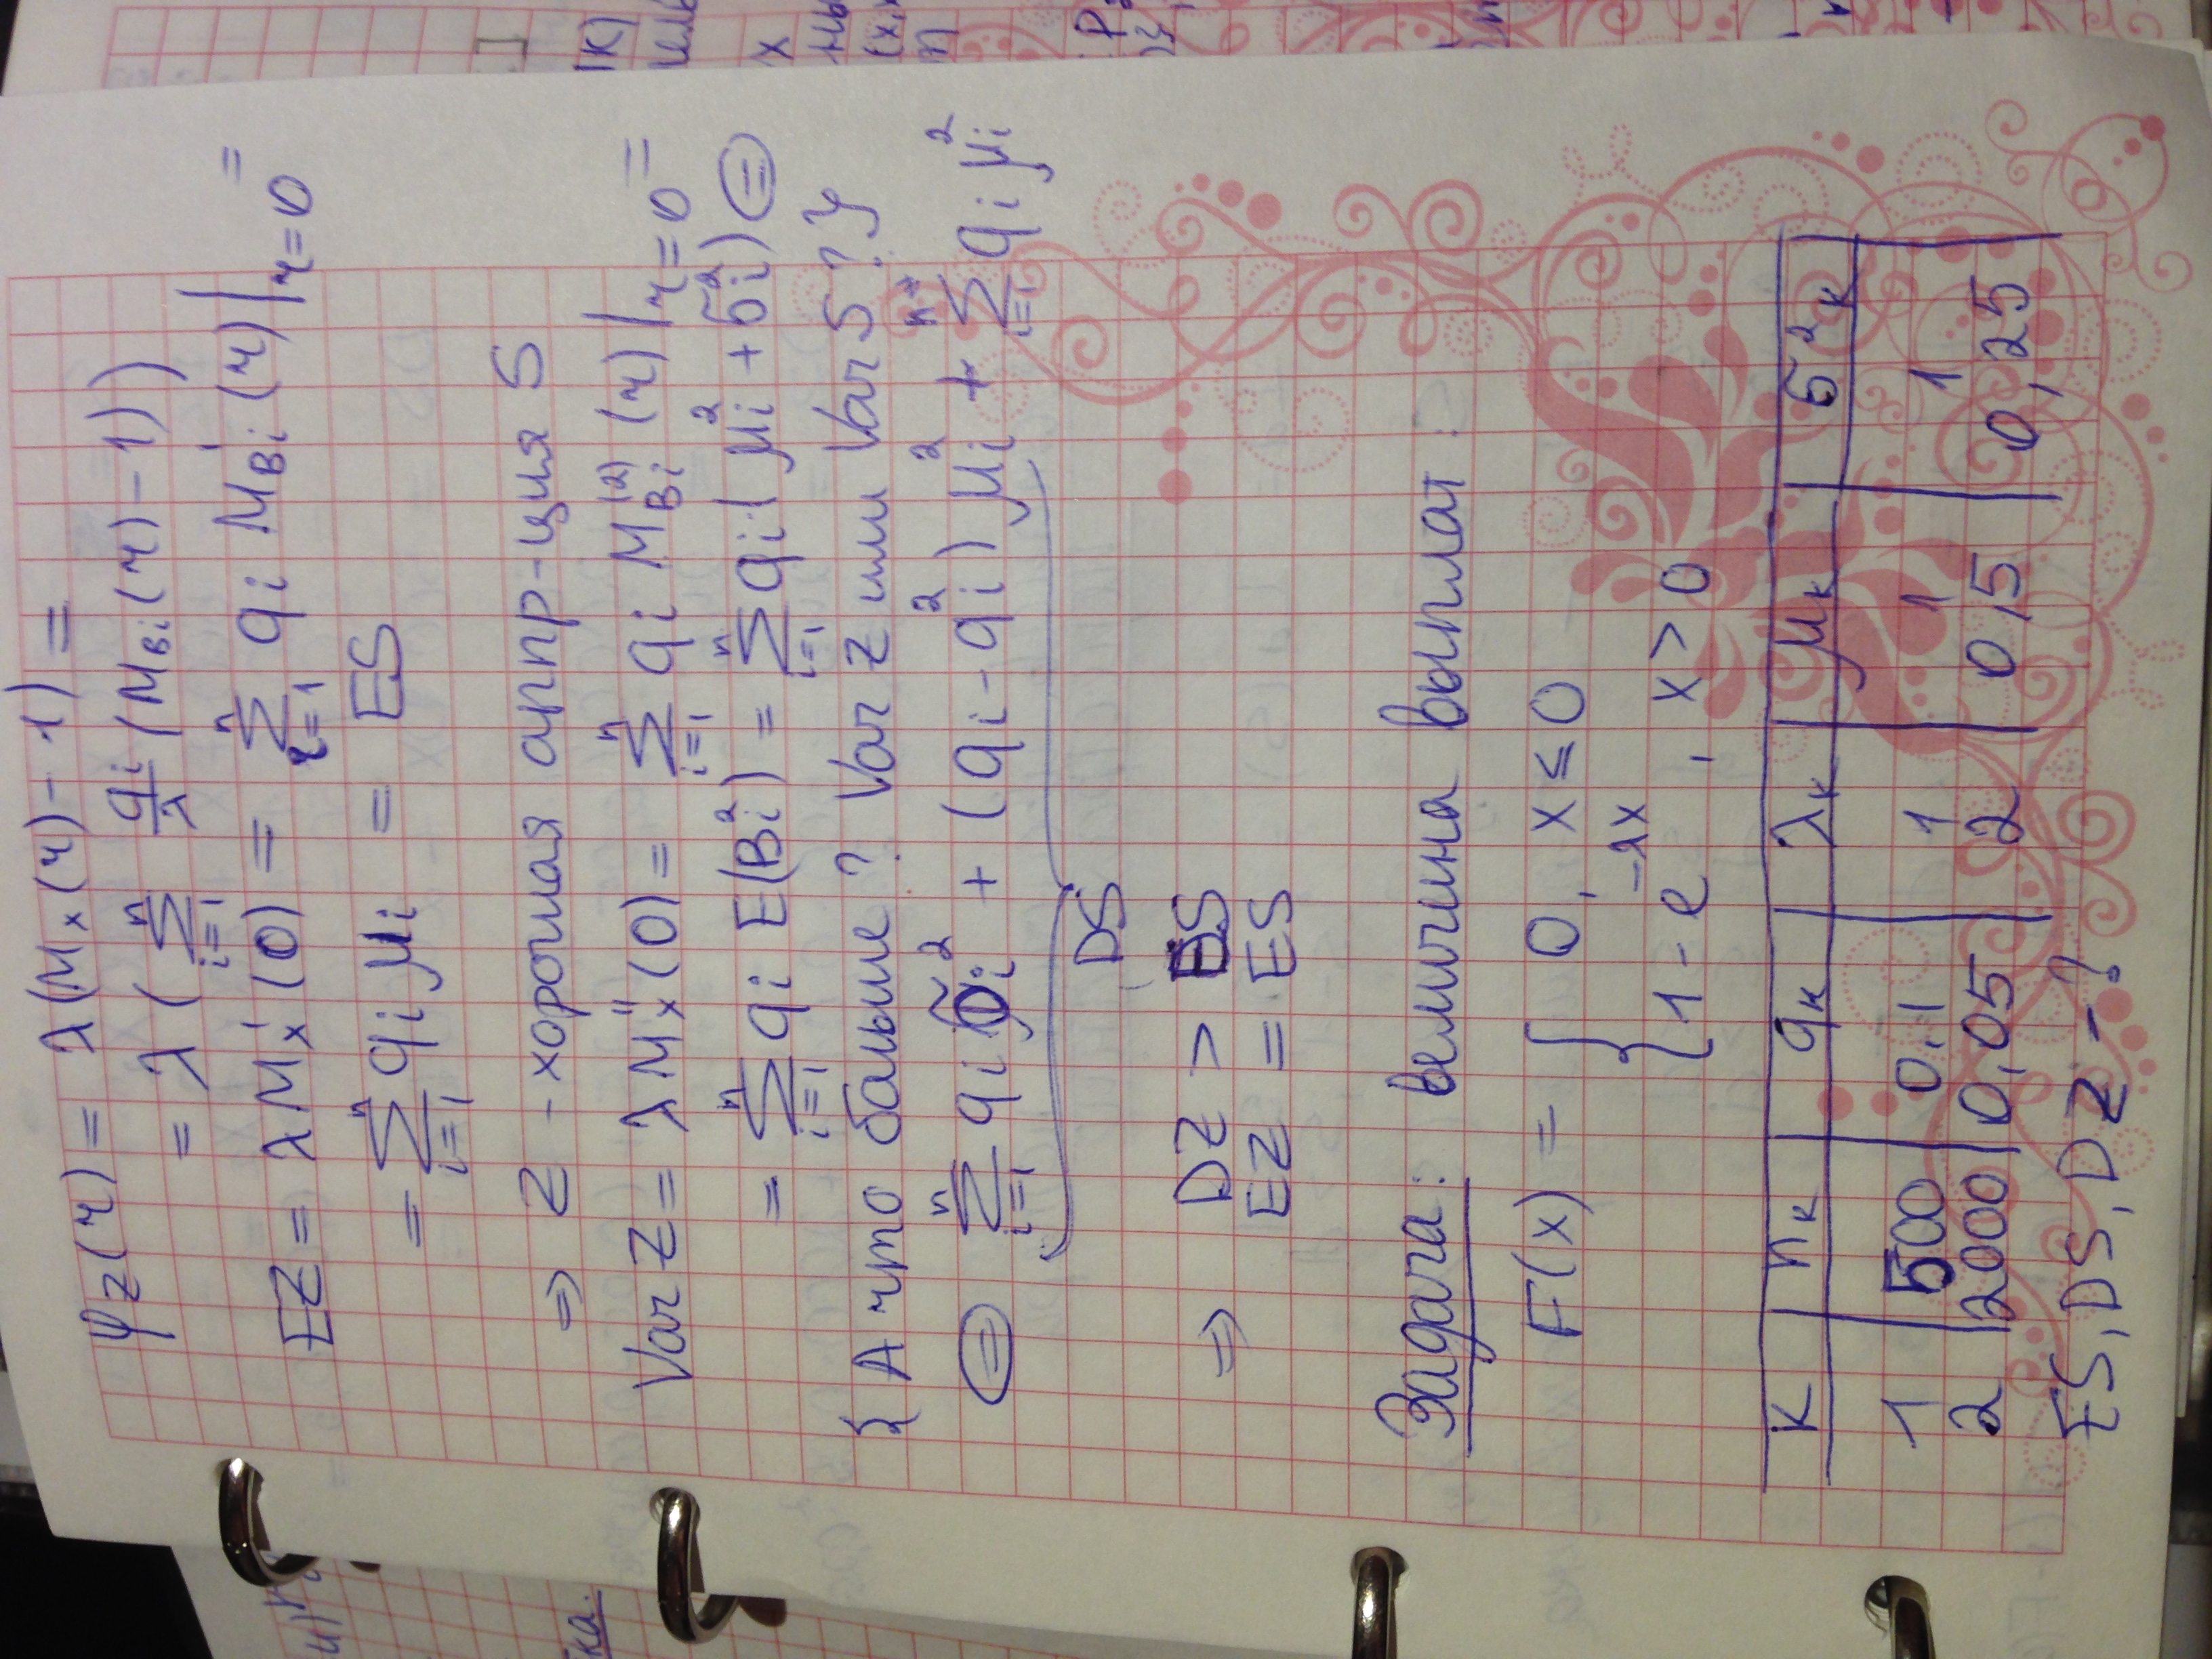 φz(r) = λ(Mx(r) - 1) =
= λ( Σ_{i=1}^{n} qi/λ (MBi(r) - 1))
EZ = λM'x(0) = Σ_{i=1}^{n} qi M'Bi(r)|r=0 =
= Σ_{i=1}^{n} qi μi = ES
⇒ Z - хорошая аппр-ция S
Var Z = λM''x(0) = Σ_{i=1}^{n} qi M^{(2)}Bi(r)|r=0 =
= Σ_{i=1}^{n} qi E(Bi²) = Σ_{i=1}^{n} qi(μi² + σi²) ⊜
{ А что больше? Var Z или Var S? }
⊜ Σ_{i=1}^{n} qi σi² + (qi - qi²) μi² + Σ_{i=1}^{n} qi² μi²
DS
⇒ DZ > DS
EZ = ES
Задача: величина выплат:
F(x) = { 0, x ≤ 0
1 - e^{-λx}, x > 0
K | nк | qк | λк | μк | σ²к
1 | 500 | 0,1 | 1 | 1 | 1
2 | 2000 | 0,05 | 2 | 0,5 | 0,25
ES, DS, DZ - ?